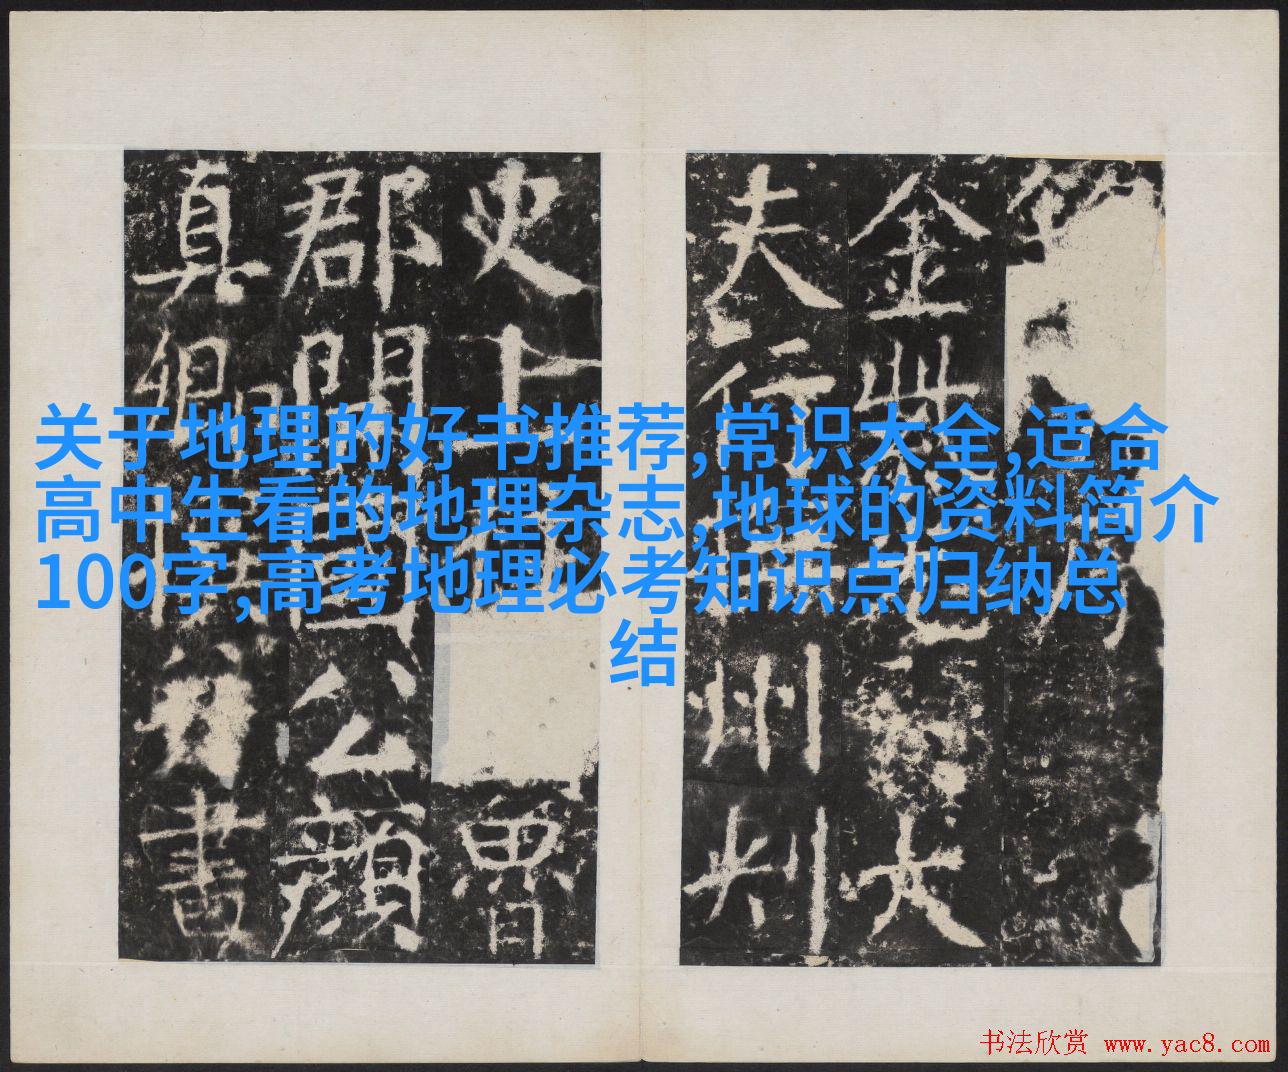 关于地理的好书推荐,常识大全,适合
高中生看的地理杂志,地球的资料简介
100字,高考地理必考知识点归纳总
结
金紫光
夫行
州刺
史上
魯
郡開國公顏
真卿
書
书法欣赏 www.yac8.com